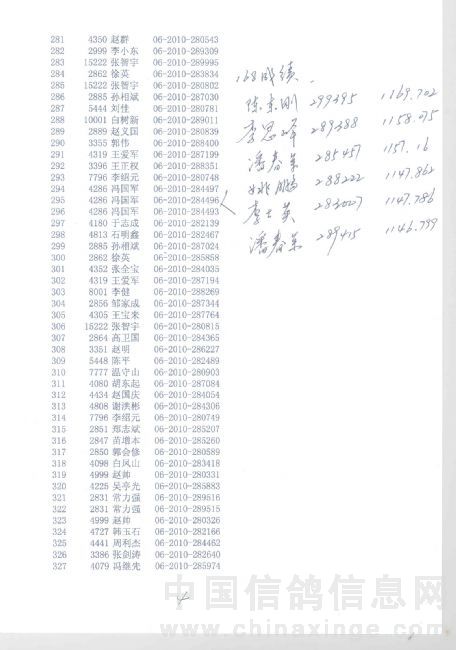 281 4350 赵群 06-2010-280543
282 2999 李小东 06-2010-289309
283 15222 张智宇 06-2010-289995
284 2862 徐英 06-2010-283834
285 15222 张智宇 06-2010-280802
286 2885 孙相斌 06-2010-287030
287 5444 刘佳 06-2010-280781
288 10001 白树新 06-2010-289011
289 2889 赵义国 06-2010-280839
290 3355 郭伟 06-2010-288400
291 4319 王爱军 06-2010-287199
292 3396 王正权 06-2010-288351
293 7796 李绍元 06-2010-280748
294 4286 冯国军 06-2010-284497
295 4286 冯国军 06-2010-284496
296 4286 冯国军 06-2010-284493
297 4180 于志成 06-2010-282139
298 4813 石明鑫 06-2010-282467
299 2885 孙相斌 06-2010-287024
300 2862 徐英 06-2010-285858
301 4352 张全宝 06-2010-284035
302 4319 王爱军 06-2010-287194
303 8001 李健 06-2010-288269
304 2856 邹家成 06-2010-287344
305 4305 王宝来 06-2010-287764
306 15222 张智宇 06-2010-280815
307 2864 高卫国 06-2010-284365
308 3351 赵明 06-2010-286227
309 5448 陈平 06-2010-282489
310 7777 温守山 06-2010-280903
311 4080 胡东起 06-2010-287084
312 4434 赵国庆 06-2010-284054
313 4808 谢洪彬 06-2010-284306
314 7796 李绍元 06-2010-280749
315 2851 郑志斌 06-2010-285207
316 2847 苗增本 06-2010-285260
317 2850 郭会修 06-2010-280589
318 4098 白凤山 06-2010-283418
319 4999 赵帅 06-2010-280331
320 4225 吴亭光 06-2010-285883
321 2831 常力强 06-2010-289516
322 2831 常力强 06-2010-289515
323 4999 赵帅 06-2010-280326
324 4727 韩玉石 06-2010-282166
325 4441 周利杰 06-2010-284462
326 3386 张剑涛 06-2010-282640
327 4079 冯继先 06-2010-285974
168成绩.
陈东刚 299395 1169.702
李思峰 289388 1158.075
潘春荣 285457 1157.16
姚鹏 288222 1147.862
李士英 283027 1147.786
潘春荣 289415 1146.799
中国信鸽信息网
www.chinaxinge.com